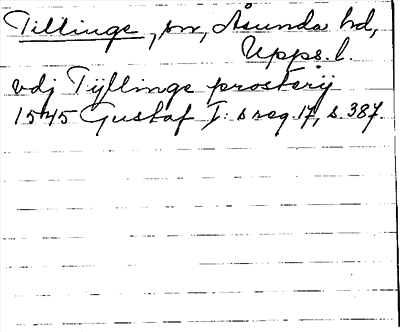 Tillinge, sn, Åsunda hd,
Upps. l.
vdj Tijllinge prosterij
1545 Gustaf I: s reg. 17, s. 387.